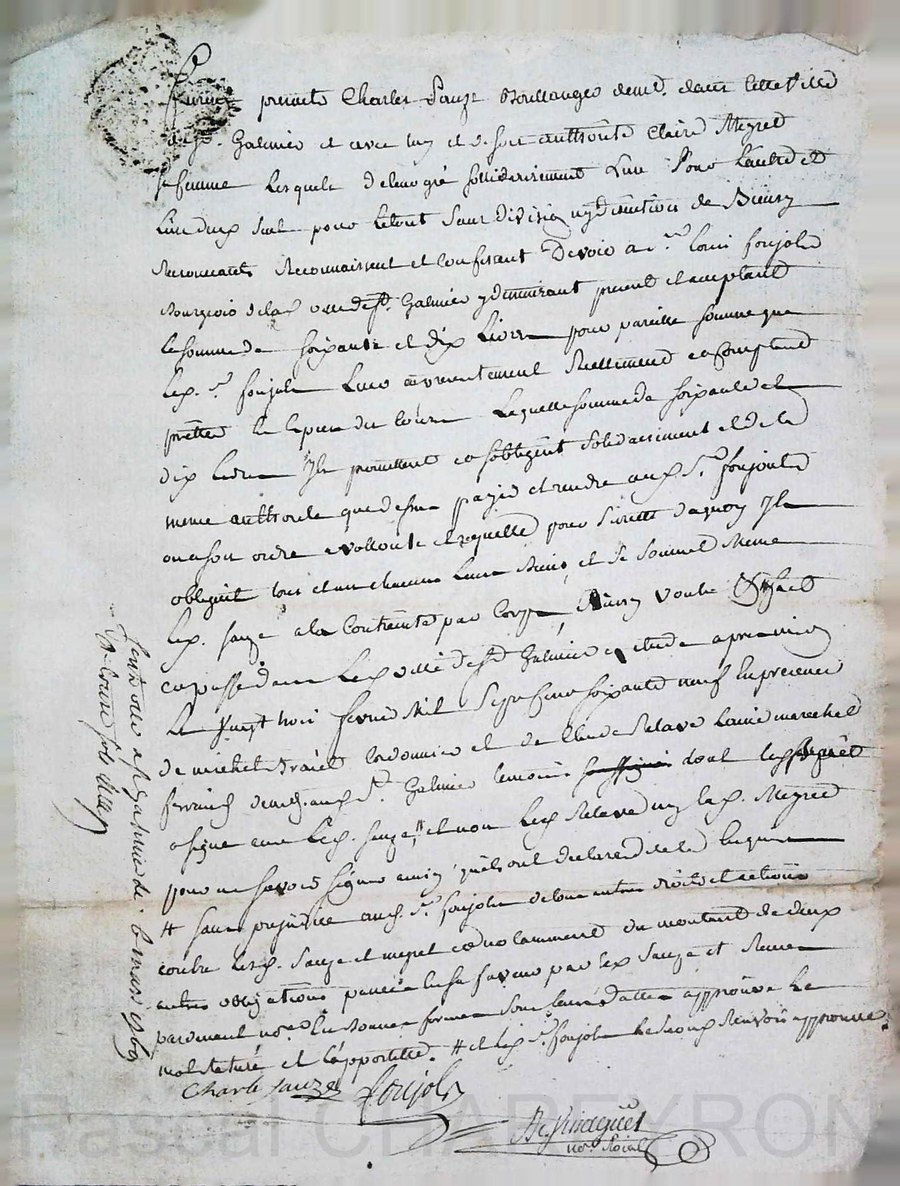 furent presents Charles Sauze Boullanger demt. dans cette ville
de St. Galmier et avec luy et de son authorité Claire Meyret
sa femme lesquels de leur gré sollidairement l'un pour l'autre et
l'un deux seul pour le tout sans division ny discution de Biens y
Renonçants Reconnaissent et confessent Devoir a Sr. Louis foujols
Bourgeois de la ville de St. Galmier y demeurant present et acceptant
la somme de soixante et dix Livres pour pareille somme que
led. Sr. foujols leur a presentement Reellement comptand
pretté laquelle somme de soixante et
dix livres ils promettent et s'obligent solidairement et de la
meme authorité que dessus payer et rendre aud. Sr. foujols
ou a son ordre a vollonté et requette pour sureté de quoy ils
obligent tous et un chacuns leurs Biens, et se soumet meme
led. sauze a la contrainte par corps, ainsy voulu fait
et passé dans lad. ville de St. Galmier etude apres midy
Le vingt trois fevrier Mil Sept cens soixante neuf En presence
de michel cordonnier et de Relave marechal
ferrand demt. aud. St. Galmier temoins dont led.
a signé avec led. sauze, # et non led. Relave ny lad. Meyret
pour ne savoir signer ainsy qu'ils ont declaré de ce Enquis
# sans prejudice aud. Sr. foujols de tous autres droits et actions
contre lesd. Sauze et meyret et notamment du montant de deux
autres obligations a sa faveur par led. Sauze et femme
pardevant nore. En Bonne forme sous leurs dattes approuvé le
mot et l'apportillé. # et led. Sr. foujols Renvoi approuvé
Charle sauze foujols
nore. Roial
Controllé a St. Galmier le 6 mars 1769
Reçu dix sols
Pascal CHAPEYRON